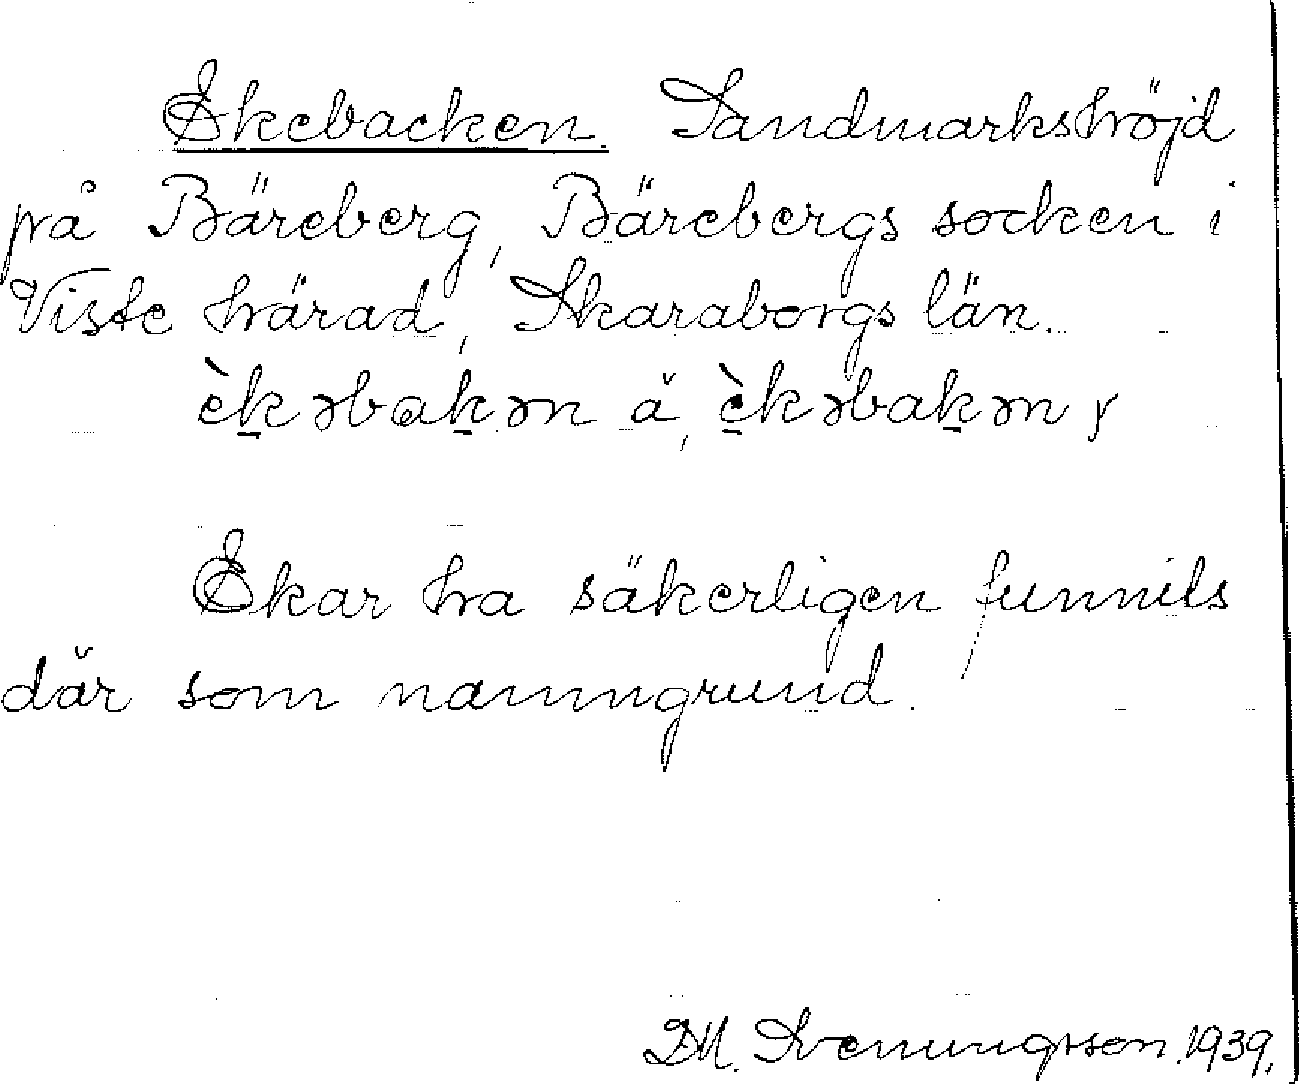 Ekebacken. Sandmarkshöjd
på Bäreberg, Bärebergs socken i
Viste härad, Skaraborgs län.
èkəbakən å, èkəbakən
Ekar ha säkerligen funnits
där som namngrund.
D.M. Svenningsson. 1939.